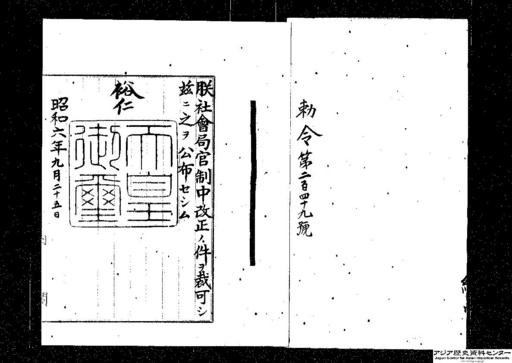 勅令第二百四十九號
朕社會局官制中改正ノ件ヲ裁可シ
玆ニ之ヲ公布セシム
裕仁
天皇御璽
昭和六年九月二十五日
アジア歴史資料センター
Japan Center for Asian Historical Records